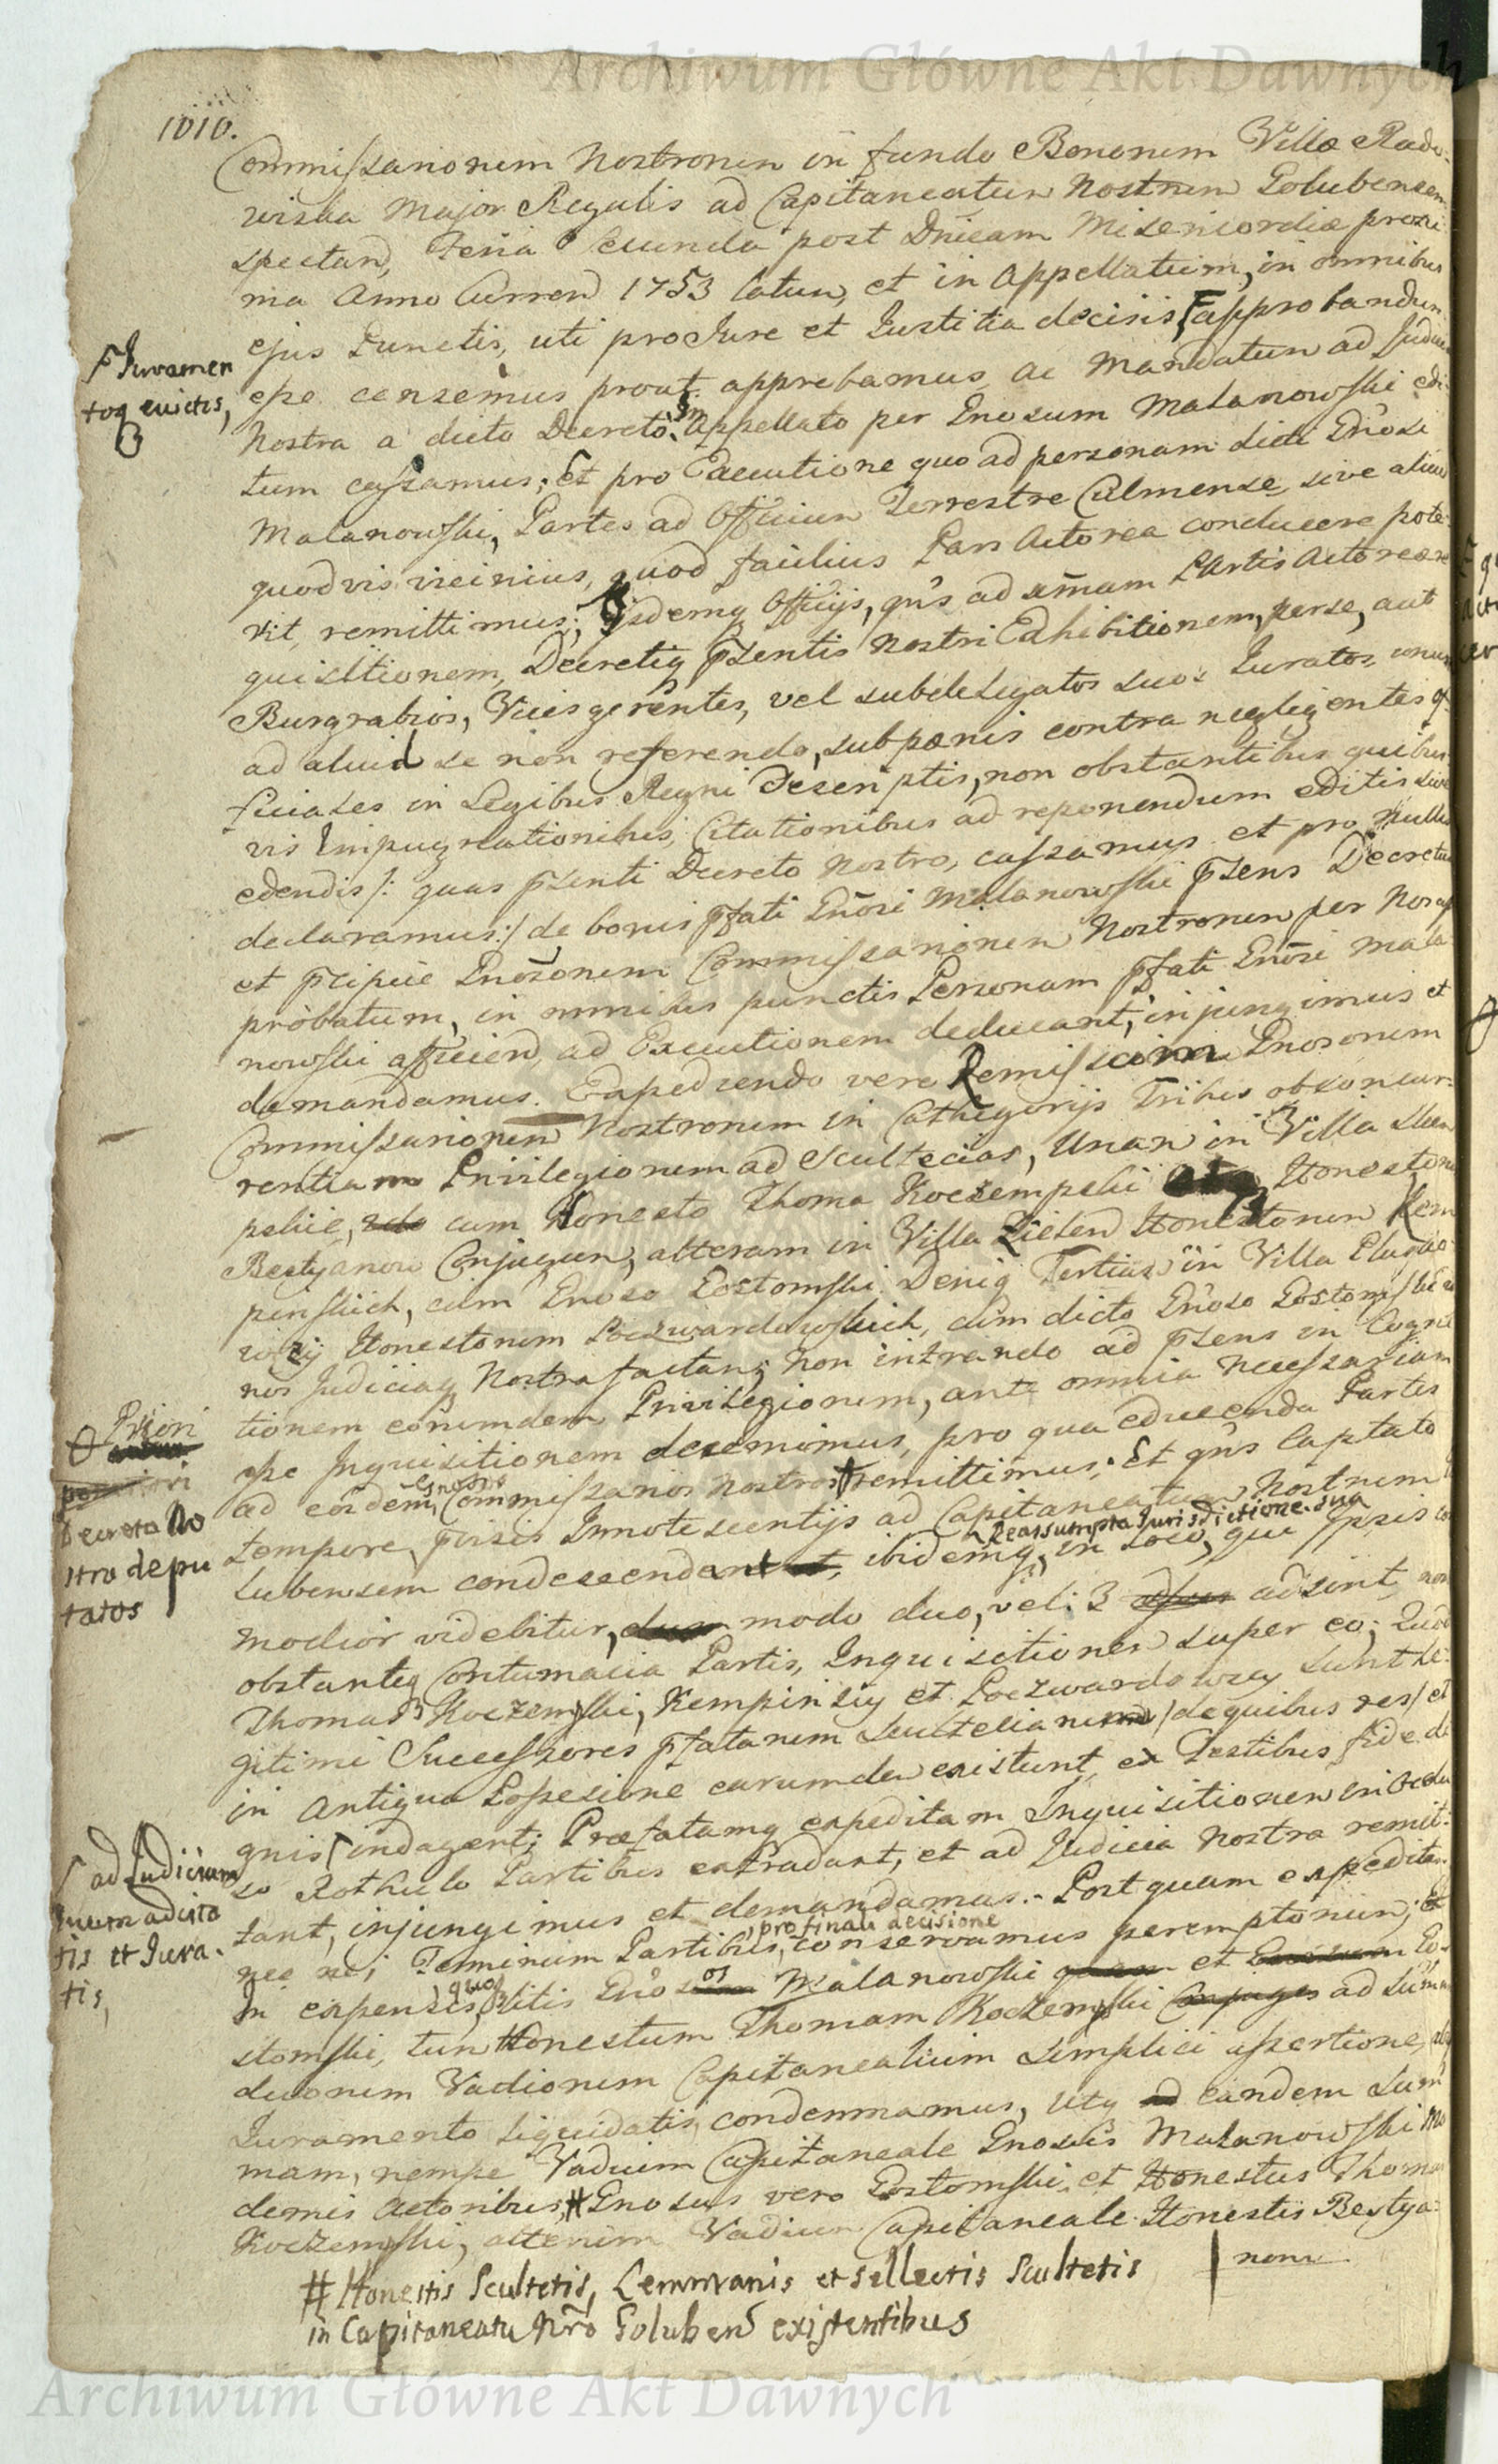 Archiwum Główne Akt Dawnych
1010.
Commissariorum Nostrorum in fundo Bonorum Villæ Rado-
wiska Major Regalis ad Capitaneatum Nostrum Golubensem
spectan, Feria Secunda post Dnicam Misericordiæ proxi
ma Anno Curren 1753 latum, et in Appellatum, in omnibus
ejus Punctis, uti pro Jure et Justitia decisis, approbandum
esse censemus prout approbamus, ac Mandatum ad Judicia
Nostra a dicto Decreto in Appellato per Gnosum Malanowski edi-
tum cassamus; Et pro Executione quo ad personam dicti Gnosi
Malanowski, Partes ad Officium Terrestre Culmense, sive aliud
quodvis vicinius, quod facilius Pars Actorea conducere pote-
rit, remittimus; Ijsdemq Officijs, qns ad aman Partis Actoreæ re
quisitionem, Decretiq pntis Nostri Exhibitionem, per se, aut
Burgrabios, Vicesgerentes, vel subdelegatos suos Juratos, onus
ad aliud se non referendo, sub pænis contra negligentes of-
ficiales in Legibus Regni descriptis, non obstantibus quibus
vis Impugnationibus, Citationibus ad reponendum editis sive
edendis /: quas pnti Decreto Nostro, cassamus et pro nullis
declaramus:/ de bonis pfati Gnosi Malanowski pns Decretum
et pcipue Gnosorum Commissariorum Nostrorum per Nos ap
probatum, in omnibus punctis Personam pfati Gnosi Mala
nowski afficien, ad Executionem deducant, injungimus et
demandamus. Expediendo vero Remissam Gnosorum
Commissariorum Nostrorum in Cathegorijs Tribus ob concur-
rentiam Privilegiorum ad Scultecias, Unam in Villa
pskie, cum Honesto Thoma Koczempski Honestorum
Bestyanow Conjugum, alteram in Villa Zielen Honestorum Kem
pinskich, cum Gnoso Gostomski Deniq Tertiam in Villa Pluskowe
Honestorum Poczwardowskich, cum dicto Gnoso Gostomski ad
nos Judiciaq Nostra factam; Non intrando ad pns in Cogni
tionem eorumdem Privilegiorum, ante omnia necessariam
esse Inquisitionem decernimus, pro qua educenda Partes
ad eosdem Gnosos Commissarios Nostros remittimus; Et qns Captato
tempore, pvijs Innotescentijs ad Capitaneatum Nostrum Go
lubensem condescendant, ibidemq, Reassumpta Jurisdictione sua in loco, qui Ipsis co
modior videbitur, modo duo, vel 3 adsint, non
obstanteq Contumacia Partis, Inquisitiones super eo; Quod
Thomas Koczemski, Kempinscy et Poczwardowscy sunt le-
gitimi Successores pfatarum Scultetiarum /de quibus res/ et
in Antiqua Possesione earumdem existunt, ex Testibus fide di
gnis indagent; Præfatamq expeditam Inquisitionem in
so Rothulo Partibus extradant, et ad Judicia Nostra remit-
tant, injungimus et demandamus. Post quam expeditam
nec ne; Terminum Partibus, pro finali decisione conservamus peremptorium; Et
In expensis, quos litis Gnosos Malanowski et Go
stomski, tum Honestum Thomam Koczemski ad Summ
duorum Vadiorum Capitanealium simplici assertione, absq
Juramento liquidatis, condemnamus, Utq eandem Sum
mam, nempe Vadium Capitaneale Gnosus Malanowski mo
dernis Actoribus, # Gnosus vero Gostomski, et Honestus Thomas
Koczemski, alterum Vadium Capitaneale Honestis Bestya-
nom
# Honestis Scultetis, Lemmanis et sellectis Scultetis
in Capitaneatu Nro Goluben existentibus
Juramen
toq evictis,
Priori
Decreto No
stro depu
tatos
ad Judicium
suum adcita
tis et Jura-
tis,
Archiwum Główne Akt Dawnych